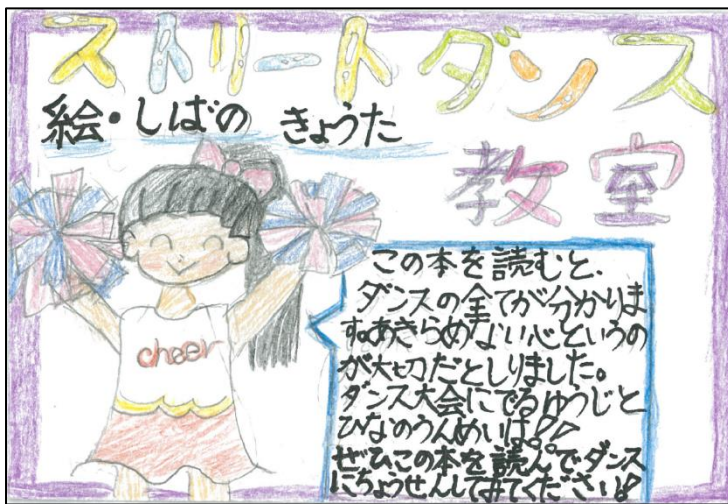 ストリートダンス
教室
絵・しばの きょうた
cheer
この本を読むと、
ダンスの全てが分かりま
す。あきらめない心というの
が大切だとしりました。
ダンス大会にでるゆうじと
ひなのうんめいは!?
ぜひこの本を読んでダンス
にちょうせんしてみてください!